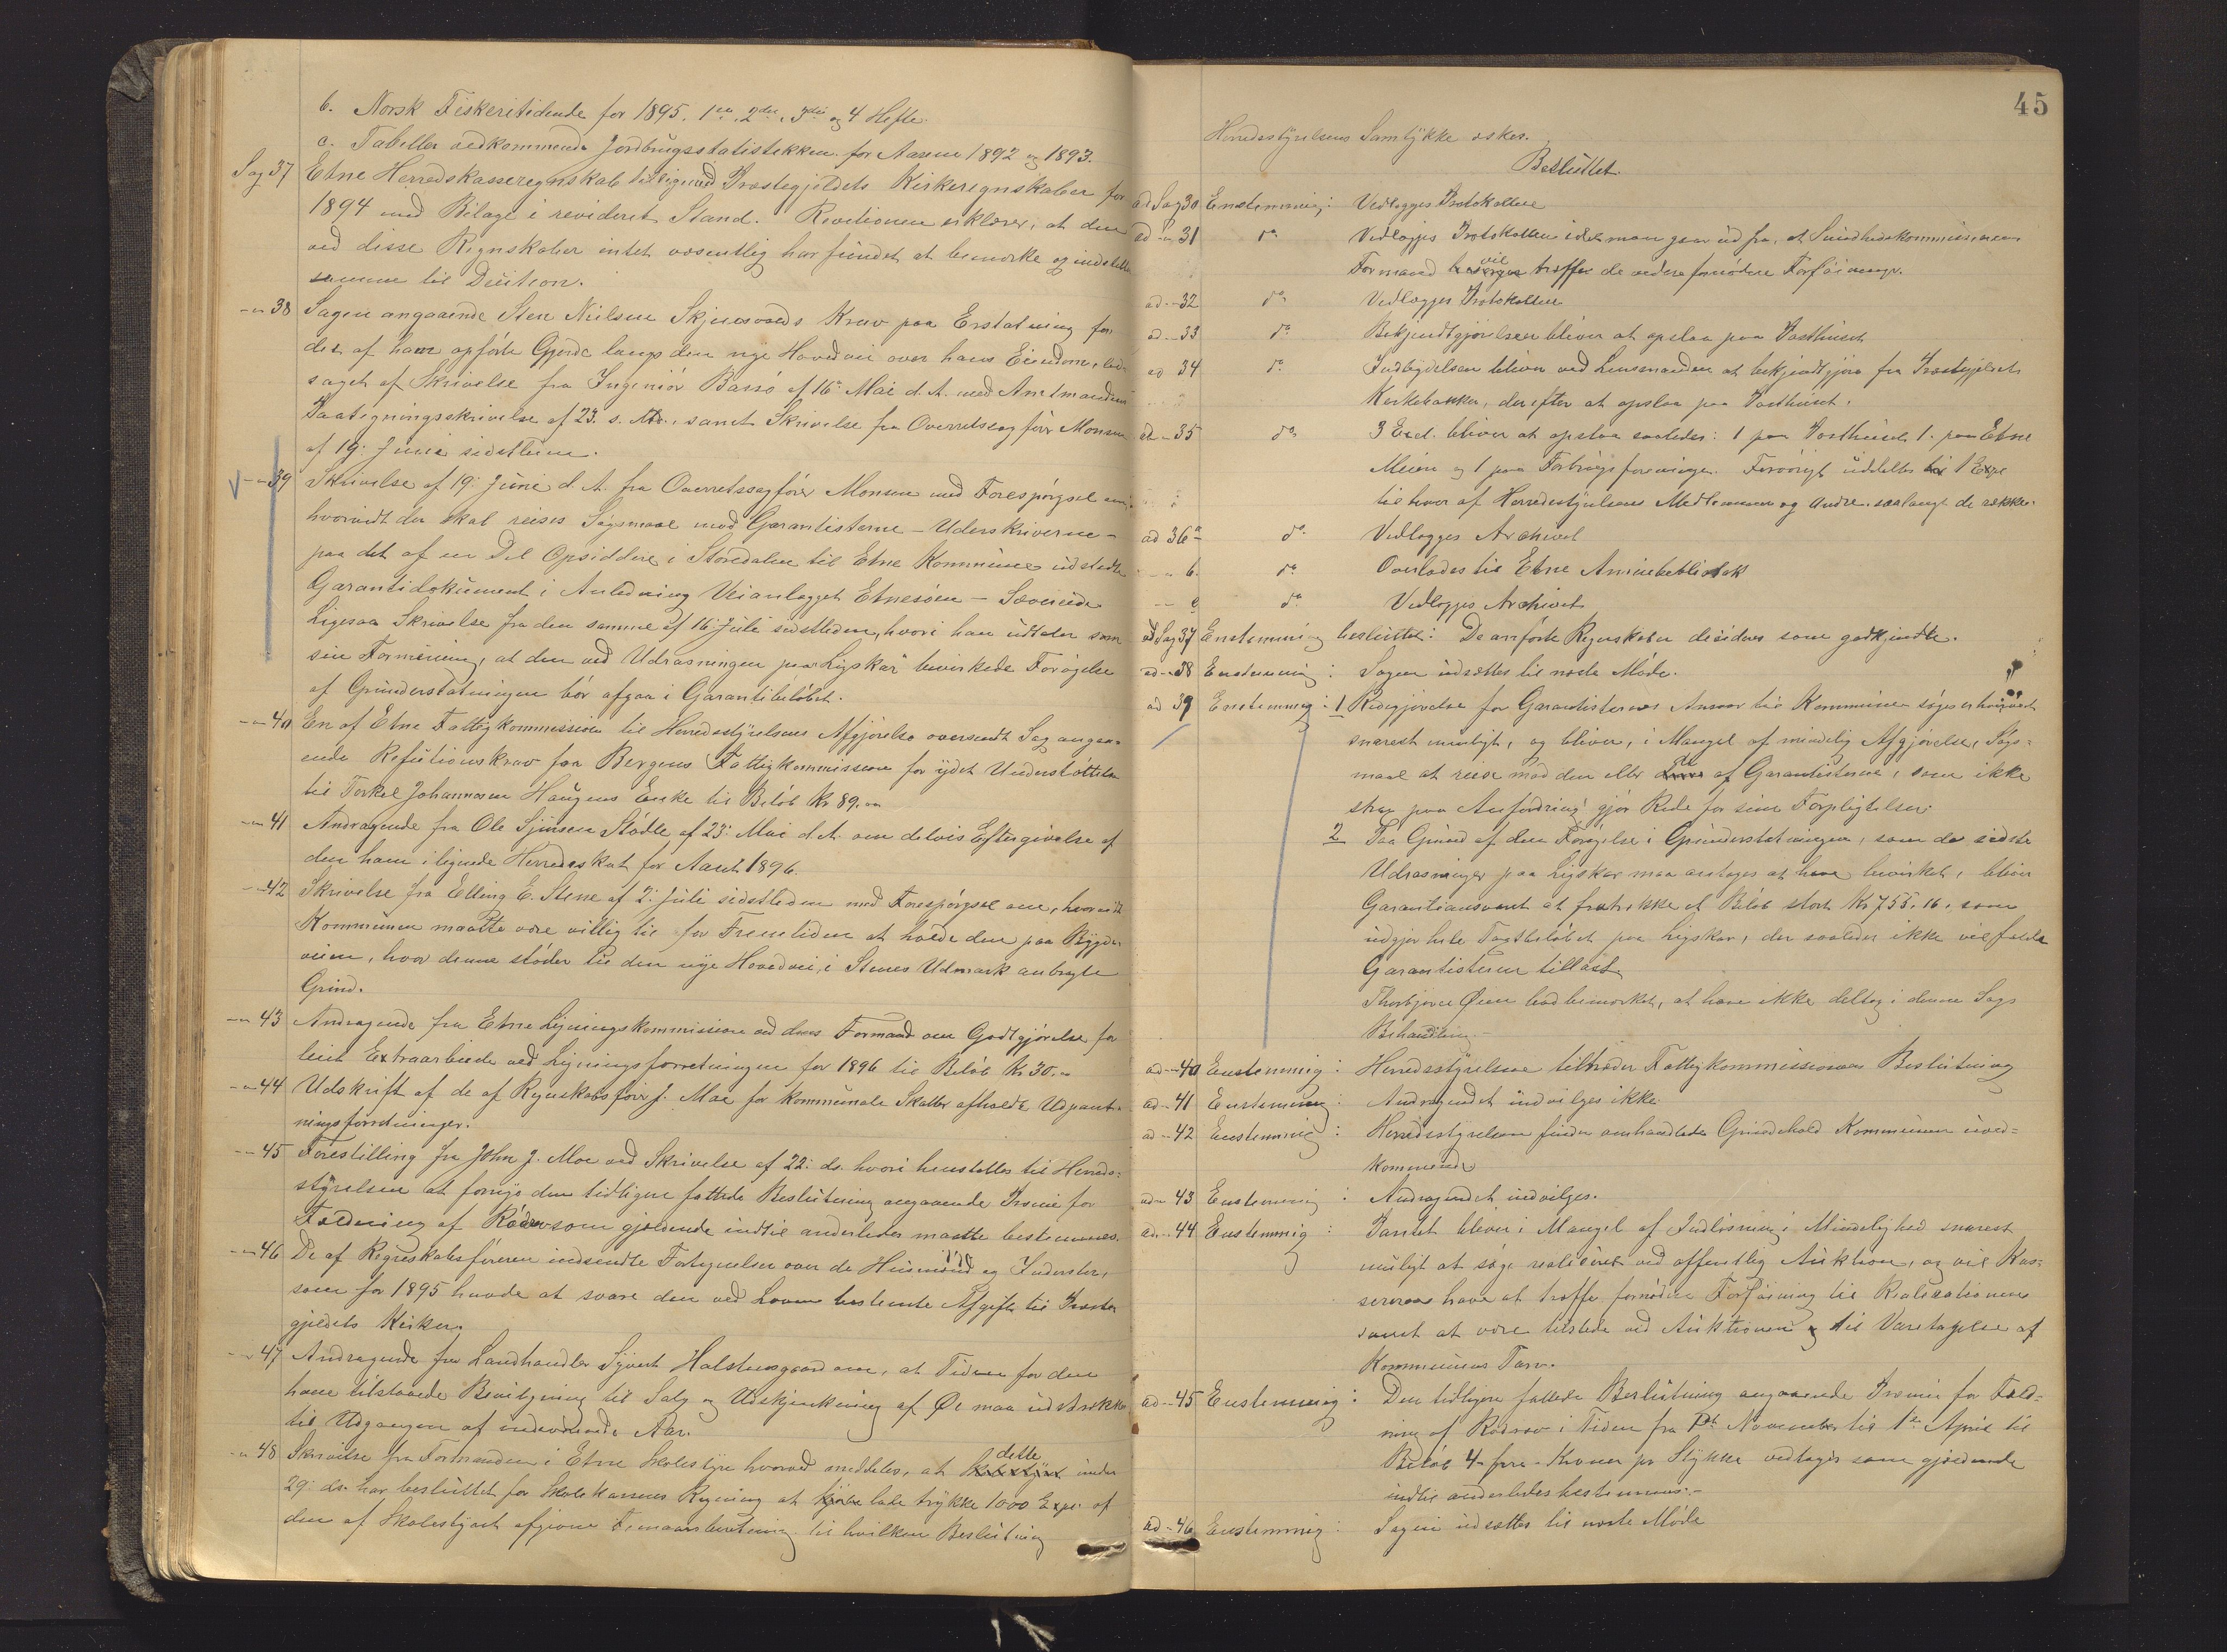 b. Norsk Fiskeritidende for 1895. 1ste, 2det, 3die og 4 Hefte.
c. Tabeller vedkommende Jordbrugsstatistikken for Aarene 1892 og 1893.
Sag 37 Etne Herredskasseregnskab tilligemed Præstegjeldets Kirkeregnskaber for
1894 med Bilage i revideret Stand. Revisionen erklærer, at den
ved disse Regnskaber intet væsentlig har fundet at bemærke og indstiller
samme til Decision.
-"- 38 Sagen angaaende Sten Nielsen Skjensvolds Krav paa Erstatning for
det af ham opførte Gjerde langs den nye Hovedvei over hans Eiendom, led-
saget af Skrivelse fra Ingeniør Barsø af 16de Mai d. A. med Amtmandens
Paategningsskrivelse af 23. s. Md., samt Skrivelse fra Overretssagfører Monsen
af 19. Juni sidstleden.
-"- 39 Skrivelse af 19. Juni d. A. fra Overretssagfører Monsen med Forespørgsel om,
hvorvidt der skal reises Søgsmaal mod Garantisterne – Underskriverne –
paa det af en Del Opsiddere i Stordalen til Etne Kommune udstedte
Garantidokument i Anledning Veianlægget Etnesøen – Sævereide
Ligesaa Skrivelse fra den samme af 16 Juli sidstleden, hvori han udtaler som
sin Formening, at den ved Udrasningen paa Ligskar bevirkede Forøgelse
af Grunderstatningen bør afgaa i Garantibeløbet.
-"- 40 En af Etne Fattigkommission til Herredsstyrelsens Afgjørelse oversendt Sag angaa-
ende Refusionskrav fra Bergens Fattigkommission for ydet Understøttelse
til Torkel Johannesen Haugens Enke til Beløb Kr 89.00
-"- 41 Andragende fra Ole Sjursen Stødle af 23. Mai d. A. om delvis Eftergivelse af
den ham ilignede Herredsskat for Aaret 1896.
-"- 42 Skrivelse fra Elling E. Stene af 2. Juli sidstleden med Forespørgsel om, hvorvidt
Kommunen maatte være villig til for Fremtiden at holde den paa Bygde-
veien, hvor denne støder til den nye Hovedvei, i Stenes Udmark anbragte
Grind.
-"- 43 Andragende fra Etne Ligningskommission ved dens Formand om Godtgjørelse for
leiet Extraarbeide ved Ligningsforretningen for 1896 til Beløb Kr 30.-
-"- 44 Udskrift af de af Regnskabsfører J. Moe for kommunale Skatter afholdte Udpant-
ningsforretninger.
-"- 45 Forestilling fra John J. Moe ved Skrivelse af 22. ds. hvori henstilles til Herreds-
styrelsen at fornye den tidligere fattede Beslutning angaaende Præmie for
Fældning af Ræve som gjældende indtil anderledes maatte bestemmes.
-"- 46 De af Regnskabsføreren indsendte Fortegnelser over de Husmænd og Inderster,
som for 1895 havde at svare den ved Loven bestemte Afgift til Præste-
gjeldets Kirker.
-"- 47 Andragende fra Landhandler Sjovert Halstensgaard om, at Tiden for den
ham tilstaaede Bevilgning til Salg og Udskjænkning af Øl maa udstrækkes
til Udgangen af indeværende Aar.
-"- 48 Skrivelse fra Formanden i Etne Skolestyre hvorved meddeles, at dette under
29. ds. har besluttet for Skolekassens Regning at lade trykke 1000 Expl. af
den af Skolestyret afgivne Femaarsberetning til hvilken Beslutning
45
Herredsstyrelsens Samtykke æskes.
Besluttet.
ad Sag 30 Enstemmig: Vedlægges Protokollen
ad -"- 31 do Vedlægges Protokollen idet man gaar ud fra, at Sundhedskommissionens
Formand vil træffe de videre fornødne Forføininger.
ad -"- 32 do Vedlægges Protokollen
ad -"- 33 do Bekjendtgjørelsen bliver at opslaa paa Posthuset
ad 34 do Indbydelsen bliver ved Lensmanden at bekjendtgjøre fra Præstegjeldets
Kirkebakker, derefter at opslaa paa Posthuset.
ad - 35 do 3 Expl. bliver at opslaa saaledes: 1 paa Posthuset, 1 paa Etne
Meieri og 1 paa Forbrugsforeningen. Forøvrigt uddeles 1 Expl
til hver af Herredsstyrelsens Medlemmer og andre, saalangt de rækker.
ad 36 a do Vedlægges Archivet
-"- b. do Overlades til Etne Almuebibliotek
-"- c do Vedlægges Archivet
ad Sag 37 Enstemmig besluttet: De anførte Regnskaber decideres som godkjendte.
ad -"- 38 Enstemmig: Sagen udsættes til næste Møde.
ad 39 Enstemmig: 1 Redegjørelse for Garantisternes Ansvar til Kommunen søges erhvervet
snarest muligt, og bliver, i Mangel af mindelig Afgjørelse, Søgs-
maal at reise mod den eller de af Garantisterne, som ikke
strax paa Anfordring gjør Rede for sine Forpligtelser.
2 Paa Grund af den Forøgelse i Grunderstatningen, som de sidste
Udrasninger paa Ligskar maa antages at have bevirket, bliver
Garantiansvaret at fratrække et Beløb stort Kr 755.16, som
udgjør hele Taxtbeløbet paa Ligskar, der saaledes ikke vil falde
Garantisterne tillast.
Thorbjørn Øien bad bemærket, at han ikke deltog i denne Sags
Behandling.-
ad -"- 40 Enstemmig: Herredsstyrelsen tiltræder Fattigkommissionens Beslutning
ad - 41 Enstemmig: Andragendet indvilges ikke.
ad - 42 Enstemmig: Herredsstyrelsen finder omhandlede Grindehold Kommunen uved-
kommende
ad - 43 Enstemmig: Andragendet indvilges.
ad -"- 44 Enstemmig: Pantet bliver i Mangel af Indløsning i Mindelighed snarest
muligt at søge realiseret ved offentlig Auktion, og vil Kas-
sereren have at træffe fornøden Forføining til Realisationen
samt at være tilstede ved Auktionen til Varetagelse af
Kommunens Tarv.
ad - 45 Enstemmig: Den tidligere fattede Beslutning angaaende Præmie for Fæld-
ning af Rødræv i Tiden fra 1ste November til 1ste April til
Beløb 4 - fire - Kroner pr Stykke vedtages som gjældende
indtil anderledes bestemmes.-
ad - 46 Enstemmig: Sagen udsættes til næste Møde